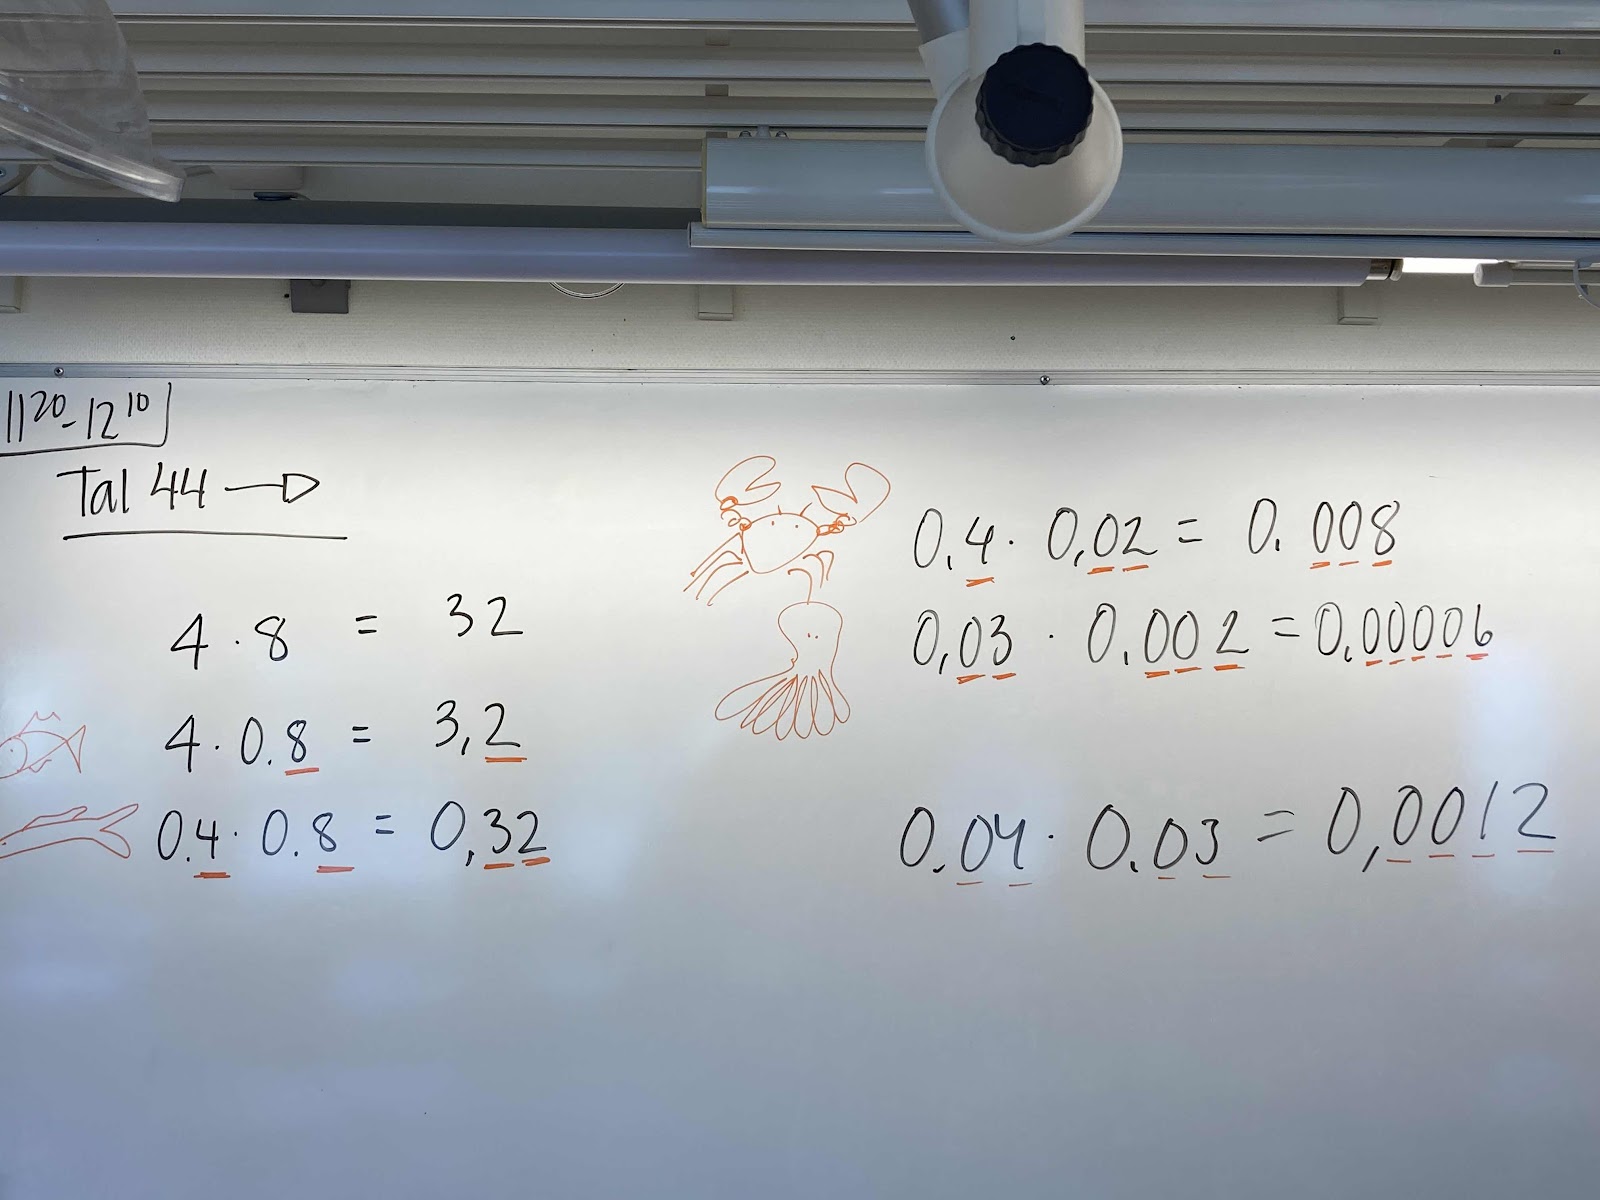 11²⁰-12¹⁰
Tal 44 →
4 · 8 = 32
4 · 0.8 = 3,2
0.4 · 0.8 = 0,32
0,4 · 0,02 = 0.008
0,03 · 0.002 = 0,00006
0.04 · 0.03 = 0,0012